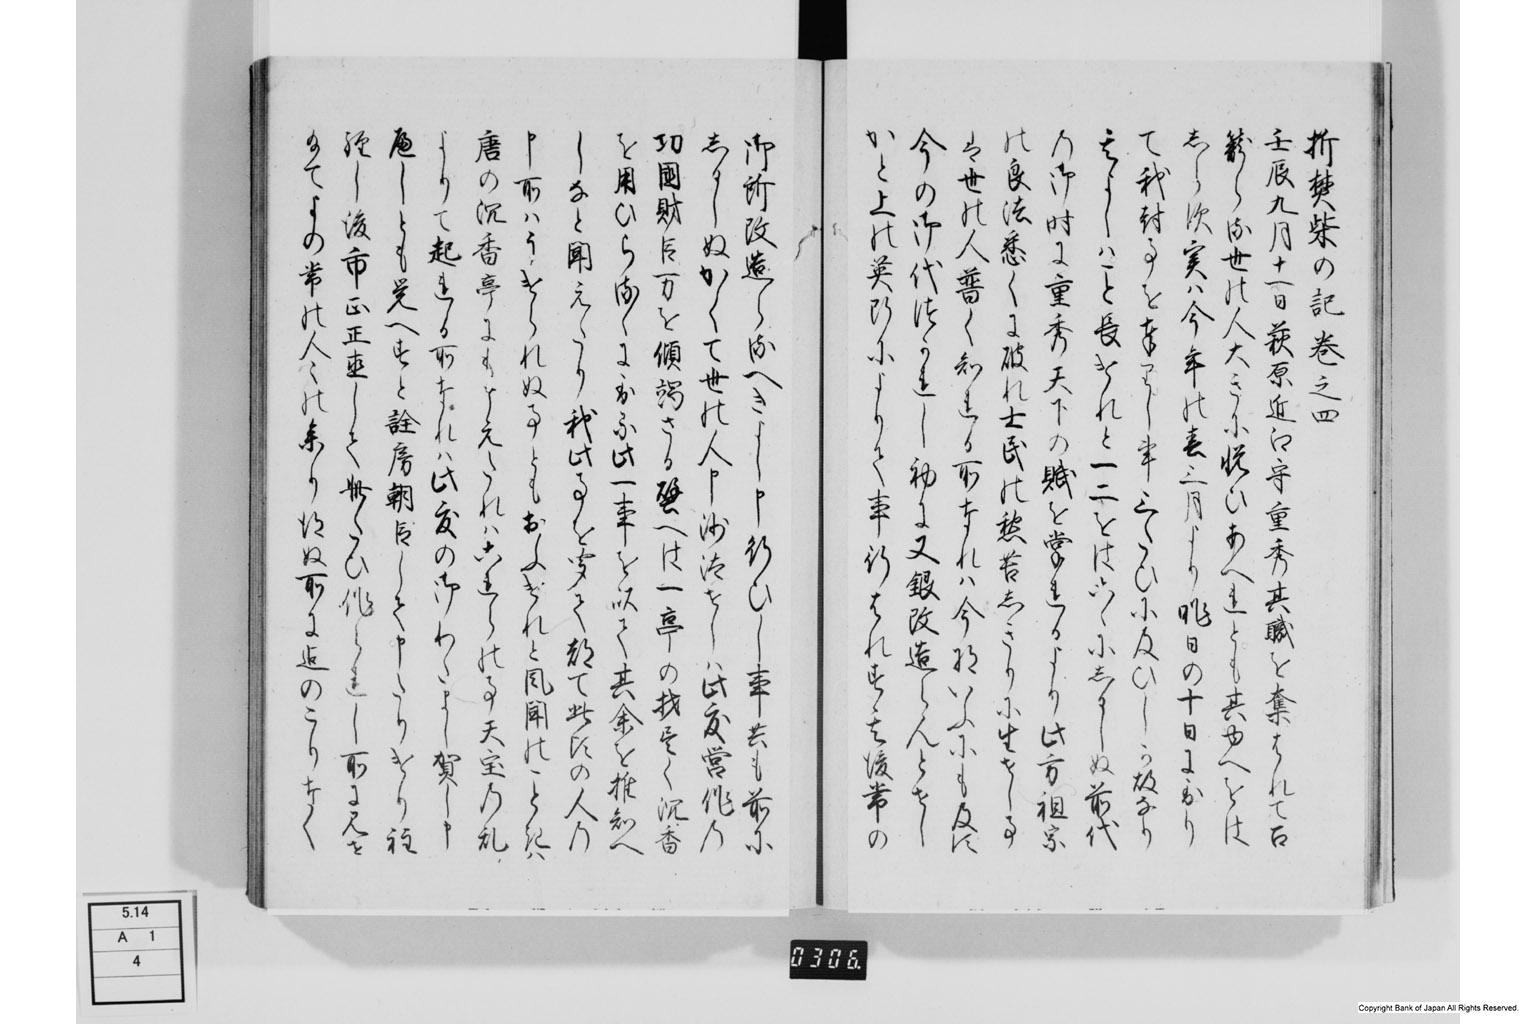 折焚柴の記巻之四
壬辰九月十一日萩原近江守重秀其職を奪はれて召
籠らる世の人大きに悦ひあへれとも其ゆへをは
しらす実は今年の春三月より昨日の十日にあり
て我封事を奉りし事三たひに及ひしか故なり
其事はこと長けれと一二をはこゝにしるしぬ前代
の御時に重秀天下の賦を掌れるより此方祖宗
の良法悉くに破れ士民の愁苦しきりに生せし事
は世の人普く知れる所なれは今更いふにも及はす
今の御代つかれし初に又銀改造らんとせし
かと上の英断によりて事行はれす其後常の
御所改造らるへきよし申行ひし事共も前に
しるしぬかくて世の人申沙汰せしは此度営作の
功国財百万を傾竭さる壁へは一亭の材尽く沈香
を用ひらるゝにあふ此一事を以て其余を推知へ
しなと聞えたり我此事を聞て都て此ほの人の
申所はうけられぬ事ともおふけれと風聞のことくは
唐の沈香亭にもこえたれはこれらの事天宝の乱
よりて起れる所なれは此度の御わたまし賀し申
へしとも覚へすと詮房朝臣して申たりけり程
経し後市正正直して此たひ作られし所に見を
めてよの常の人々の参り得ぬ所に迄のこりなく
5.14
A 1
4
0306.
Copyright Bank of Japan All Rights Reserved.